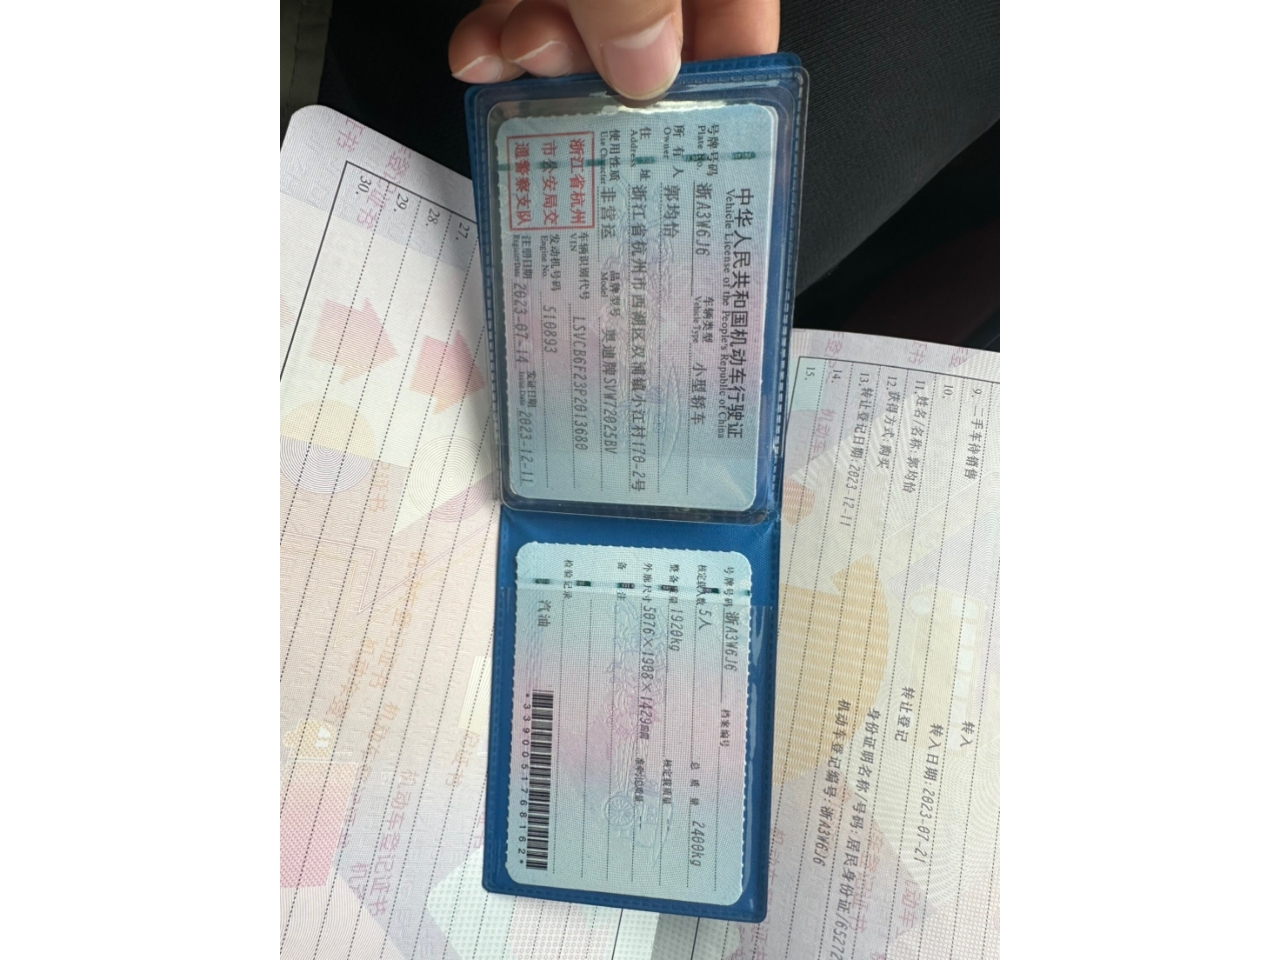 中华人民共和国机动车行驶证
Vehicle License of the People's Republic of China
号牌号码 浙A3W6J6 车辆类型 小型轿车
Plate No. Vehicle Type
所有人 郭均怡
Owner
住址 浙江省杭州市西湖区双浦镇小江村170-2号
Address
使用性质 非营运 品牌型号 奥迪牌SVW72025BV
Use Character Model
浙江省杭州
市公安局交
通警察支队
车辆识别代号 LSVCB6F23P2013680
VIN
发动机号码 510893
Engine No.
注册日期 2023-07-14 发证日期 2023-12-11
Register Date Issue Date
号牌号码 浙A3W6J6 档案编号
核定载人数 5人 总质量 2400kg
整备质量 1920kg 核定载质量
外廓尺寸 5076×1908×1429mm 准牵引总质量
备注
检验记录
汽油
*3390051768162*
9. 二手车待销售 转入
10. 转入日期:2023-07-21
11. 姓名/名称:郭均怡 转让登记
12. 获得方式:购买 身份证明名称/号码:居民身份证/65272
13. 转让登记日期:2023-12-11 机动车登记编号:浙A3W6J6
14.
15.
27.
28.
29.
30.